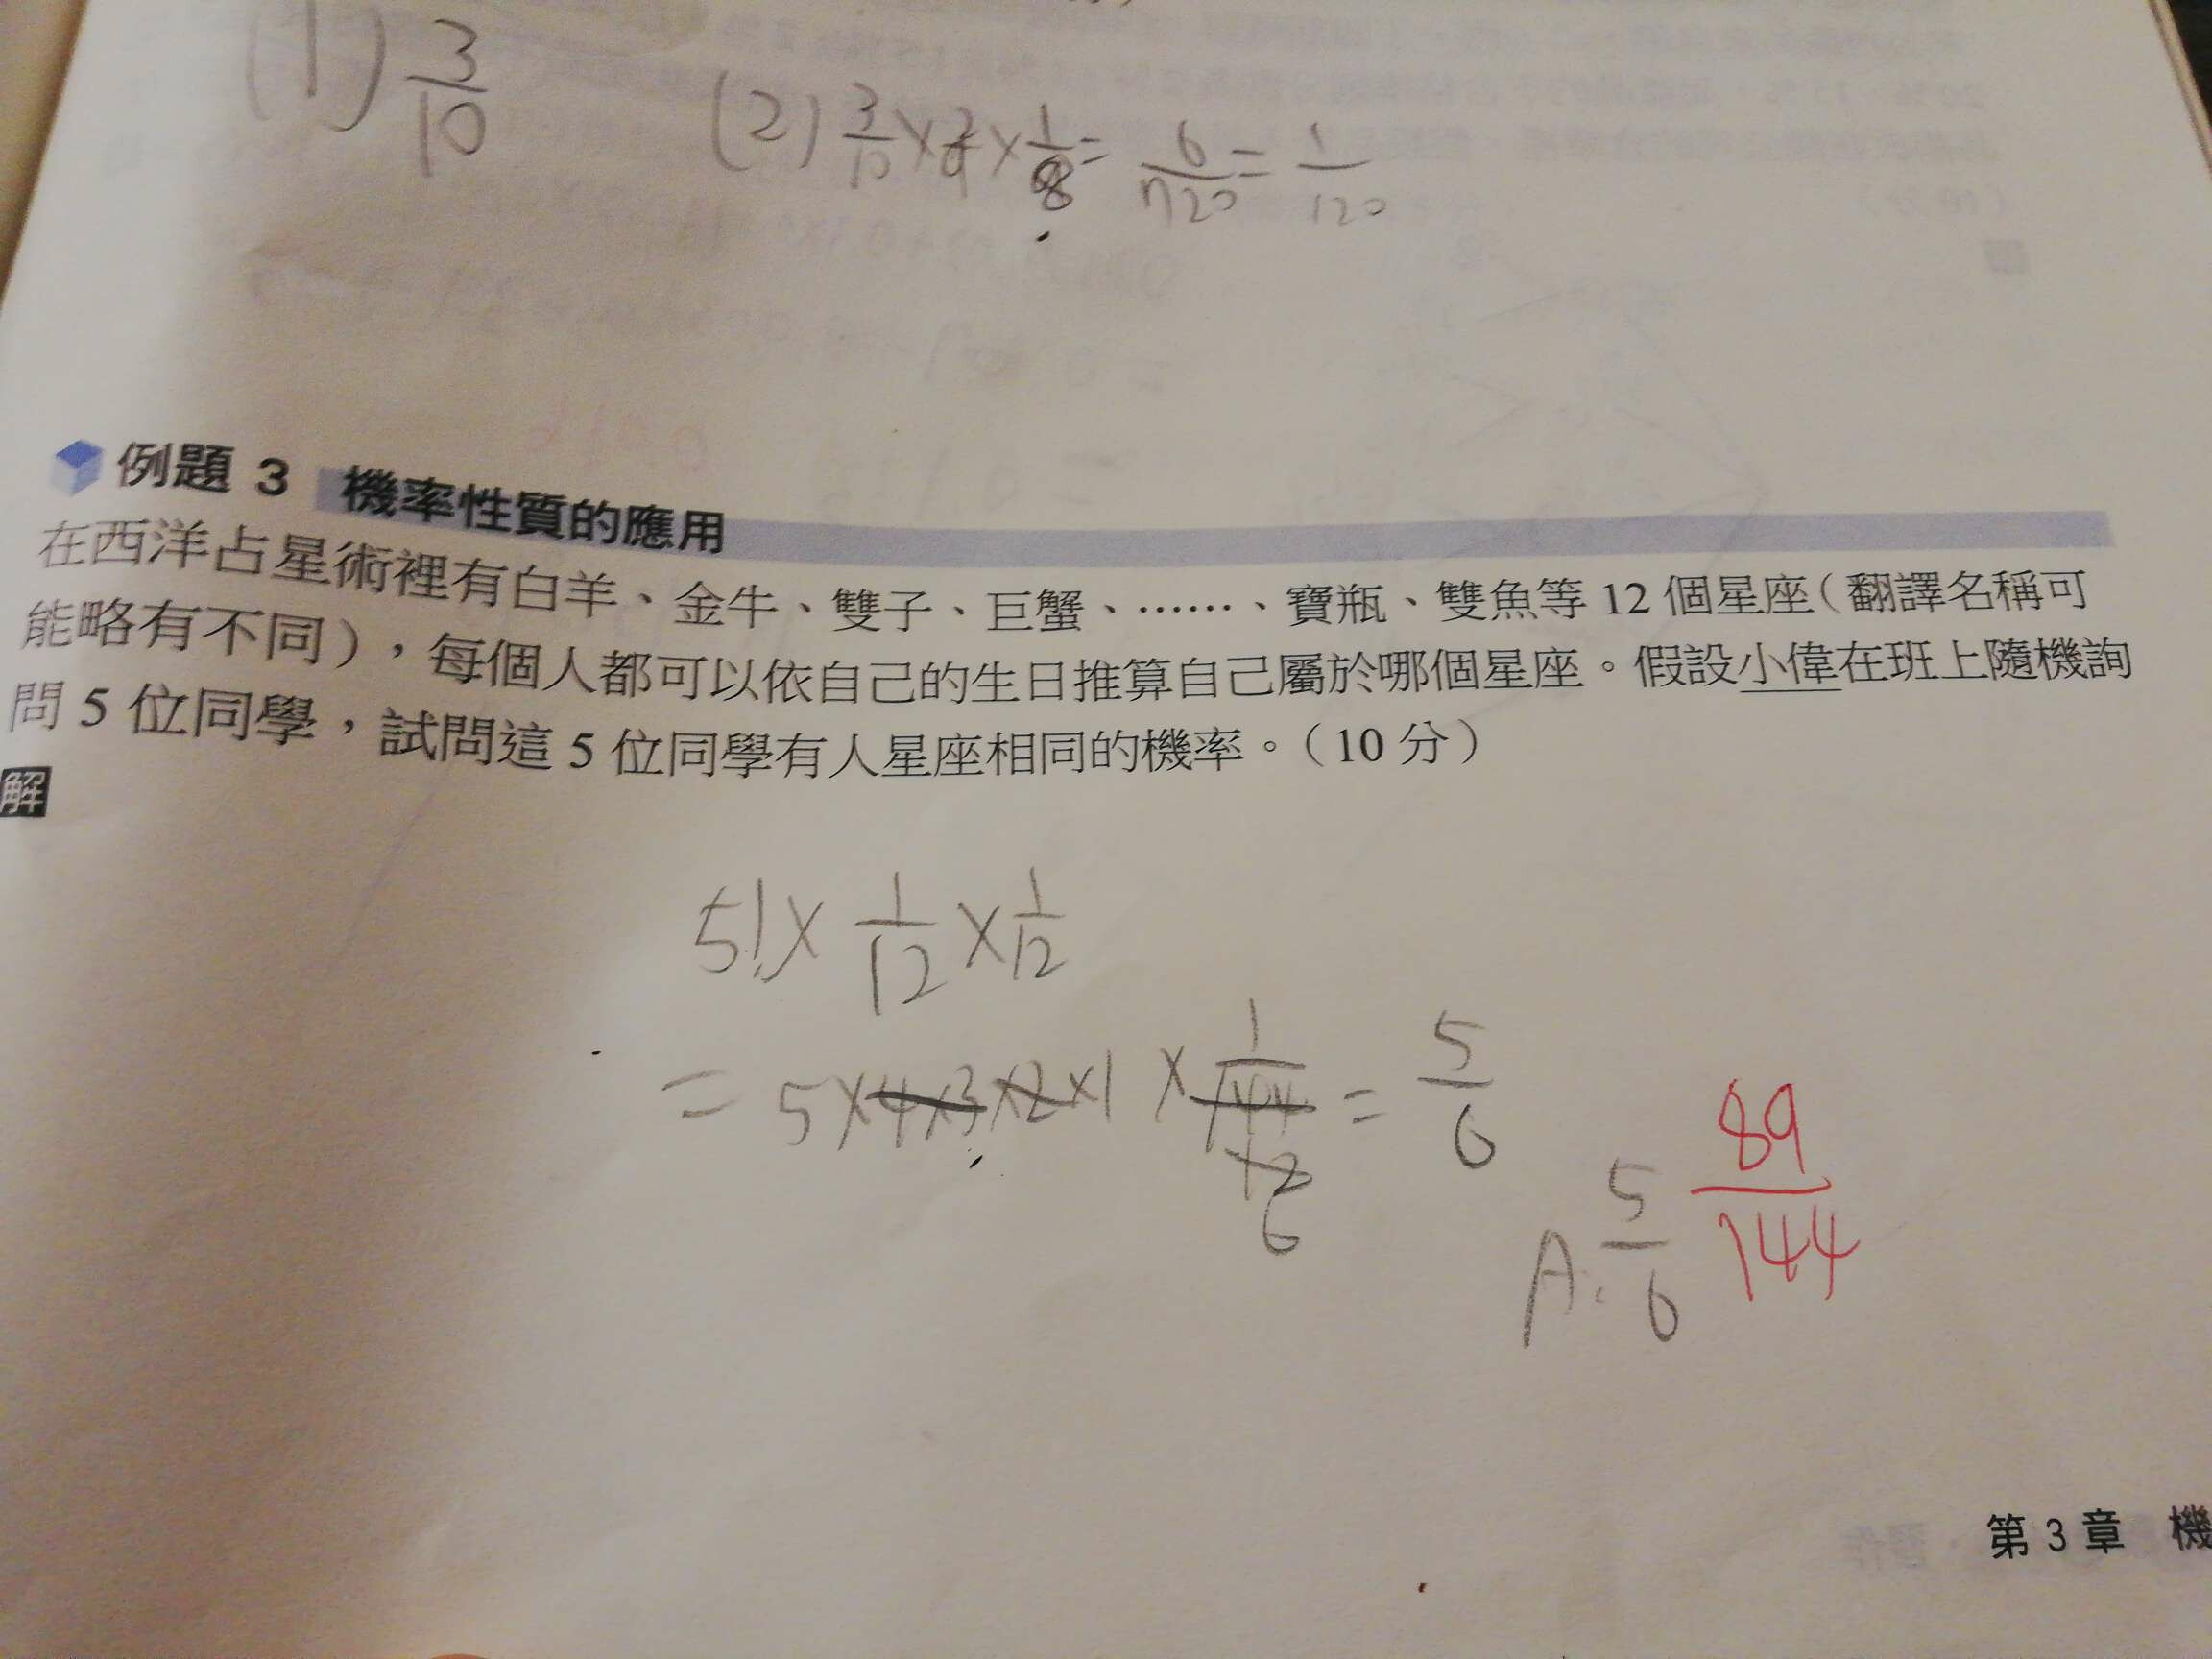 (1) 3/10 (2) 3/10 × 2/9 × 1/8 = 6/720 = 1/120
例題 3 機率性質的應用
在西洋占星術裡有白羊、金牛、雙子、巨蟹、……、寶瓶、雙魚等 12 個星座(翻譯名稱可
能略有不同),每個人都可以依自己的生日推算自己屬於哪個星座。假設小偉在班上隨機詢
問 5 位同學,試問這 5 位同學有人星座相同的機率。(10 分)
解
5! × 1/12 × 1/12
= 5×4×3×2×1 × 1/144 12 6 = 5/6
A: 5/6 89/144
第 3 章 機